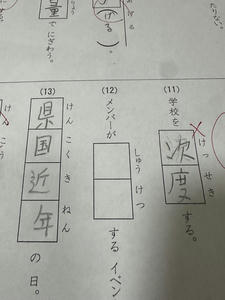 たりない。
げる
でにぎわう。
(11)
学校を次度する。
けっせき
(12)
メンバーがするイベン
しゅうけつ
(13)
県国近年の日。
けんこくきねん